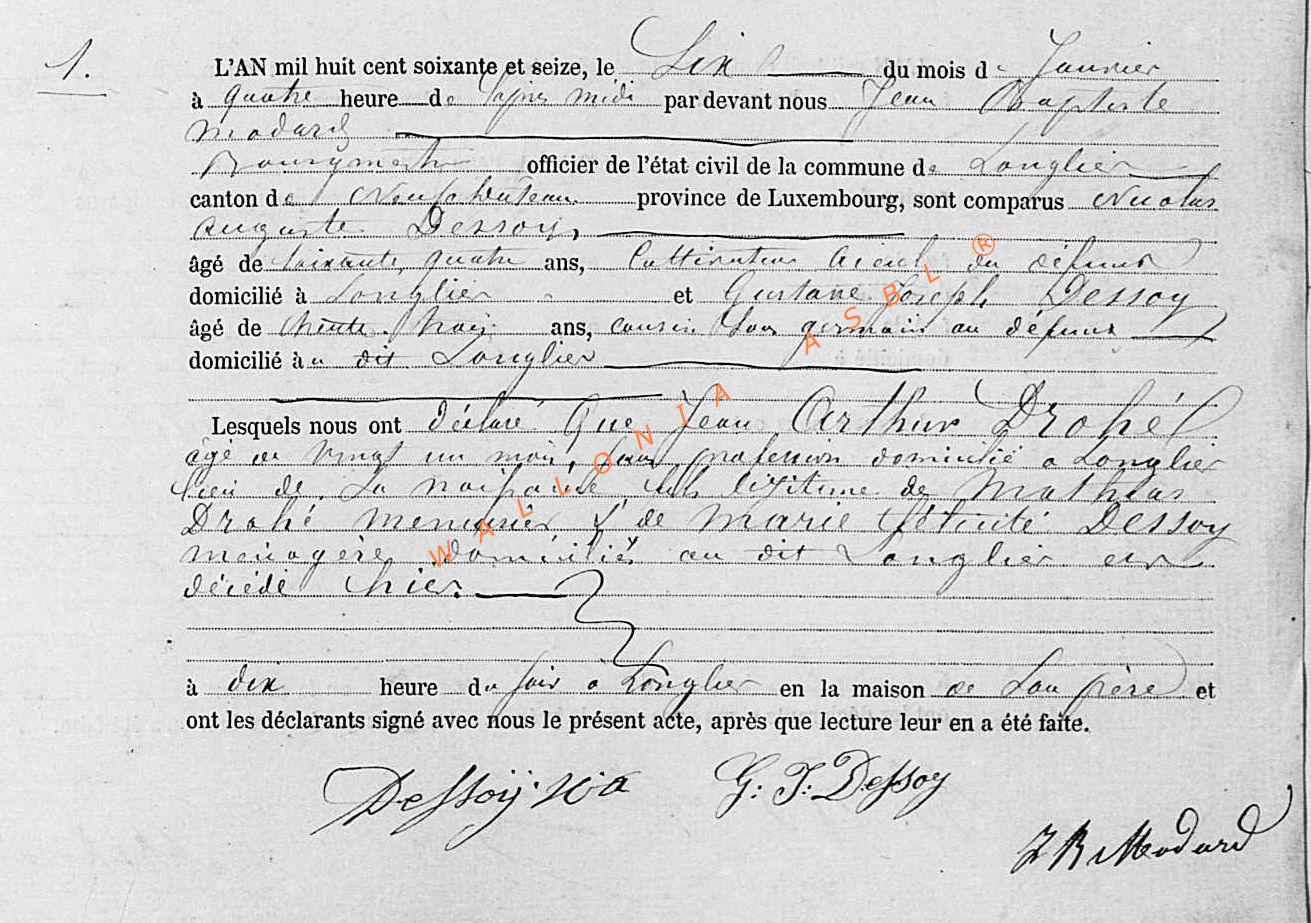 1.
L'AN mil huit cent soixante et seize, le Six du mois de Janvier
à quatre heure de l'après midi par devant nous Jean Baptiste
Modard
Bourgmestre officier de l'état civil de la commune de Longlier
canton de Neufchâteau province de Luxembourg, sont comparus Nicolas
Auguste Dessoy,
âgé de soixante quatre ans, Cultivateur aieul du défunt
domicilié à Longlier et Gustave Joseph Dessoy
âgé de trente trois ans, cousin sous germain au défunt
domicilié à u dit Longlier
Lesquels nous ont déclaré Que Jean Arthur Drohé
agé de vingt un mois, sans profession domicilié a Longlier
lieu de sa naissance, fils légitime de Mathias
Drohé menuisier & de Marie Félicité Dessoy
menagère domiciliés au dit Longlier est
décédé hier.
à dix heure du soir a Longlier en la maison de son père et
ont les déclarants signé avec nous le présent acte, après que lecture leur en a été faite.
Dessoÿ. G: J: Dessoy
J B Modard
WALLONIA ASBL ®